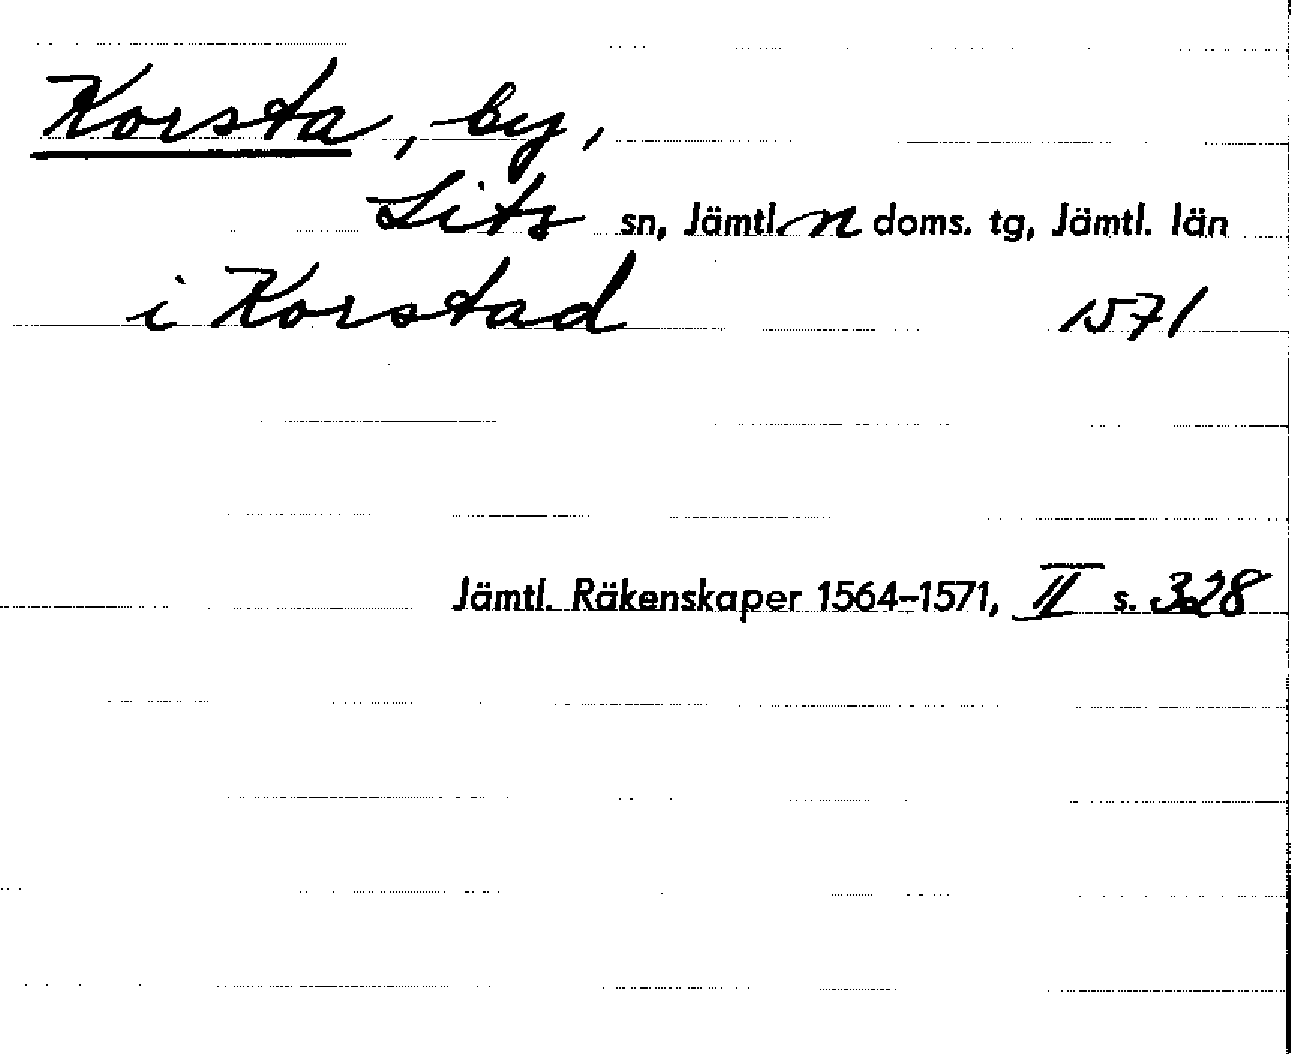 Korsta, by,
Lits sn, Jämtl. n doms. tg, Jämtl. län
i Korstad 1571
Jämtl. Räkenskaper 1564–1571, II s. 328